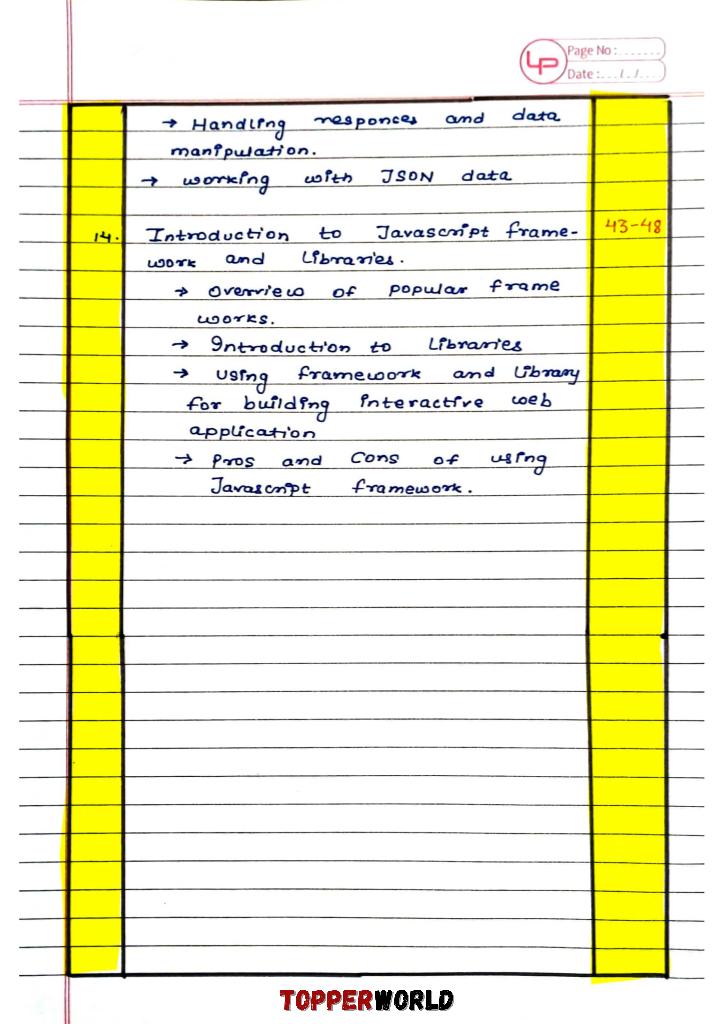 LP
Page No : .......
Date : .../../...
→ Handling responces and data
manipulation.
→ working with JSON data
14. Introduction to Javascript frame- 43-48
work and Libraries.
→ Overview of popular frame
works.
→ Introduction to Libraries
→ using framework and library
for building interactive web
application
→ Pros and Cons of using
Javascript framework.
TOPPERWORLD